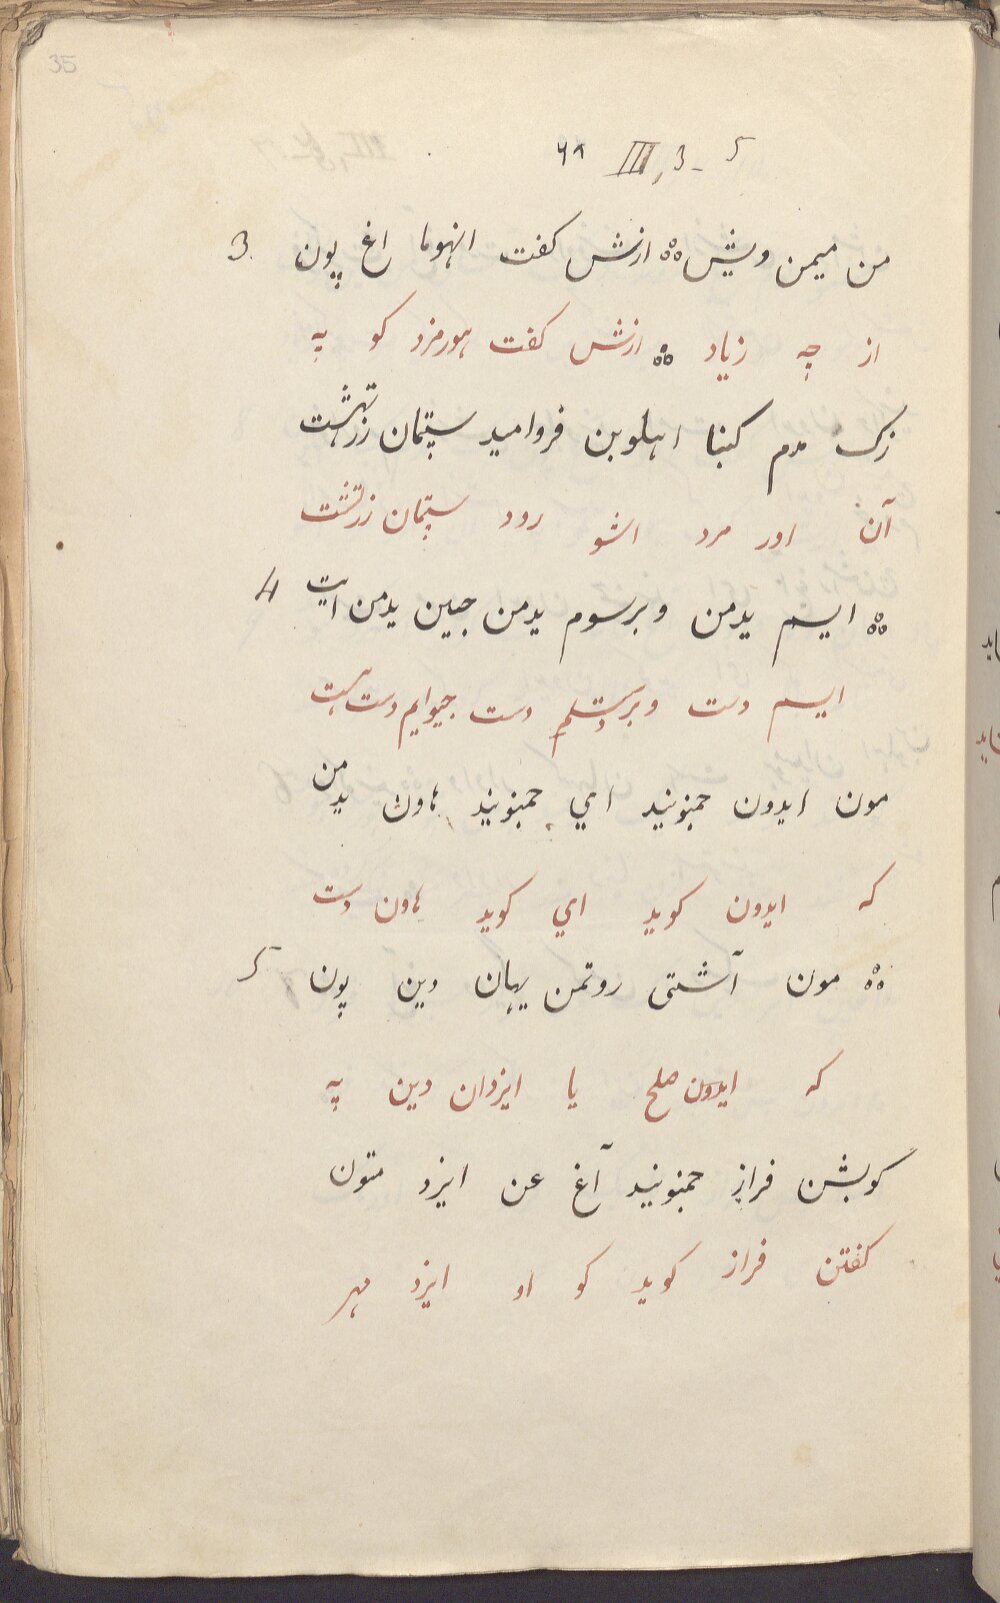 35
۶۸ III, 3-5
من میمن ویش ازش کفت انهوما اغ پون 3
از چه زیاد ازش کفت هورمزد کو په
زک مدم کبنا اهلوبن فروامید سپتمان زرتهشت
آن اور مرد اشو رود سپتمان زرتشت
ایسم یدمن وبرسوم یدمن جبین یدمن ایت 4
ایسم دست وبرسم دست جیوایم دست هست
مون ایدون جمنونید امي جمنونید هاون یدمن
که ایدون کوید امي کوید هاون دست
مون آشتی روتمن یهان دین پون 5
که ایدون صلح یا ایزدان دین په
کوبشن فراز جمنونید آغ عن ایزد متون
کفتن فراز کوید کو او ایزد مهر